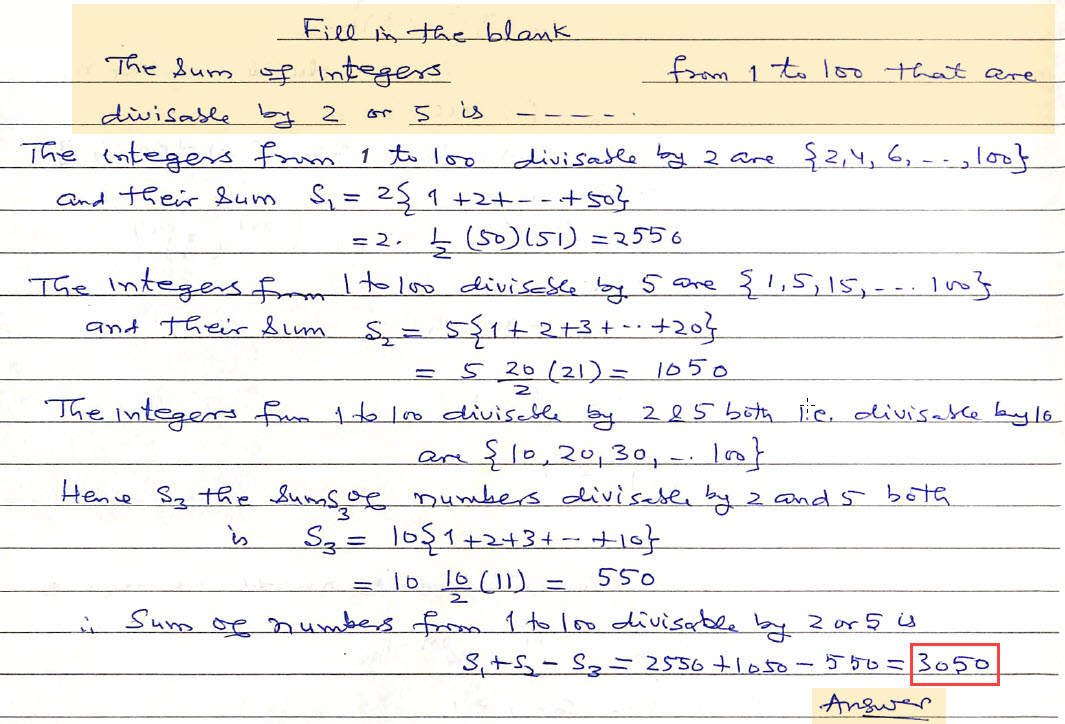 Fill in the blank
The Sum of Integers from 1 to 100 that are
divisable by 2 or 5 is - - - - - .
The integers from 1 to 100 divisable by 2 are {2, 4, 6, - - -, 100}
and their Sum S₁ = 2{ 1 + 2 + - - - + 50}
= 2 . 1/2 (50) (51) = 2550
The integers from 1 to 100 divisable by 5 are {1, 5, 15, - - - . 100}
and their Sum S₂ = 5{1 + 2 + 3 + - - - + 20}
= 5 20/2 (21) = 1050
The integers from 1 to 100 divisable by 2 & 5 both i.e. divisable by 10
are {10, 20, 30, - . . 100}
Hence S₃ the Sum S₃ of numbers divisable by 2 and 5 both
is S₃ = 10{1 + 2 + 3 + - - + 10}
= 10 10/2 (11) = 550
∴ Sum of numbers from 1 to 100 divisable by 2 or 5 is
S₁ + S₂ - S₃ = 2550 + 1050 - 550 = 3050
Answer